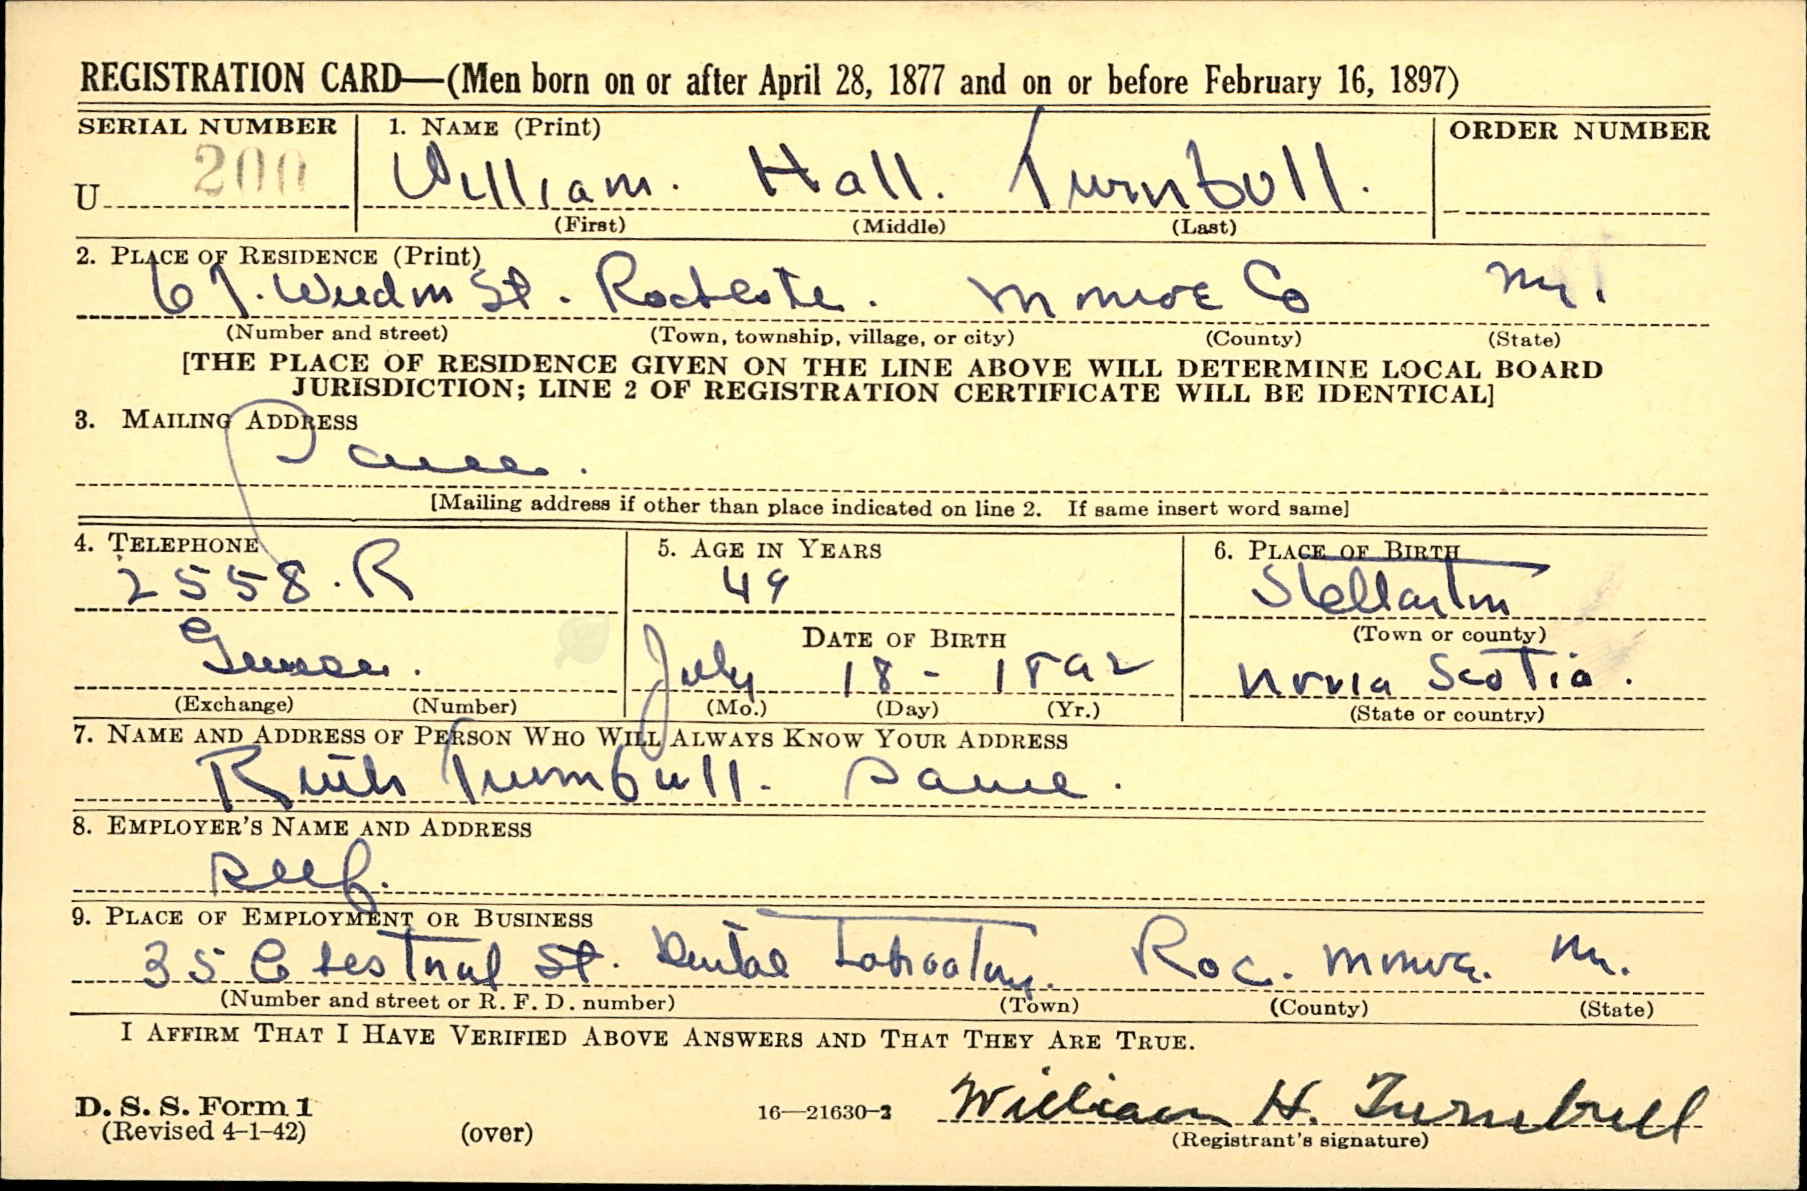 REGISTRATION CARD—(Men born on or after April 28, 1877 and on or before February 16, 1897)
SERIAL NUMBER 1. NAME (Print) ORDER NUMBER
U 200 William. Hall. Turnbull.
(First) (Middle) (Last)
2. PLACE OF RESIDENCE (Print)
St. Rochester. Monroe Co Ny.
(Number and street) (Town, township, village, or city) (County) (State)
[THE PLACE OF RESIDENCE GIVEN ON THE LINE ABOVE WILL DETERMINE LOCAL BOARD
JURISDICTION; LINE 2 OF REGISTRATION CERTIFICATE WILL BE IDENTICAL]
3. MAILING ADDRESS
Same.
[Mailing address if other than place indicated on line 2. If same insert word same]
4. TELEPHONE 5. AGE IN YEARS 6. PLACE OF BIRTH
2558.R 49 Stellarton
DATE OF BIRTH (Town or county)
July 18 - 1892 Novia Scotia.
(Exchange) (Number) (Mo.) (Day) (Yr.) (State or country)
7. NAME AND ADDRESS OF PERSON WHO WILL ALWAYS KNOW YOUR ADDRESS
Ruth Turnbull. Same.
8. EMPLOYER'S NAME AND ADDRESS
Self.
9. PLACE OF EMPLOYMENT OR BUSINESS
35 Chestnut St. Dental Labroatory. Roc. Monroe. Ny.
(Number and street or R. F. D. number) (Town) (County) (State)
I AFFIRM THAT I HAVE VERIFIED ABOVE ANSWERS AND THAT THEY ARE TRUE.
D. S. S. Form 1
(Revised 4-1-42) (over) 16—21630-2 William H. Turnbull
(Registrant's signature)